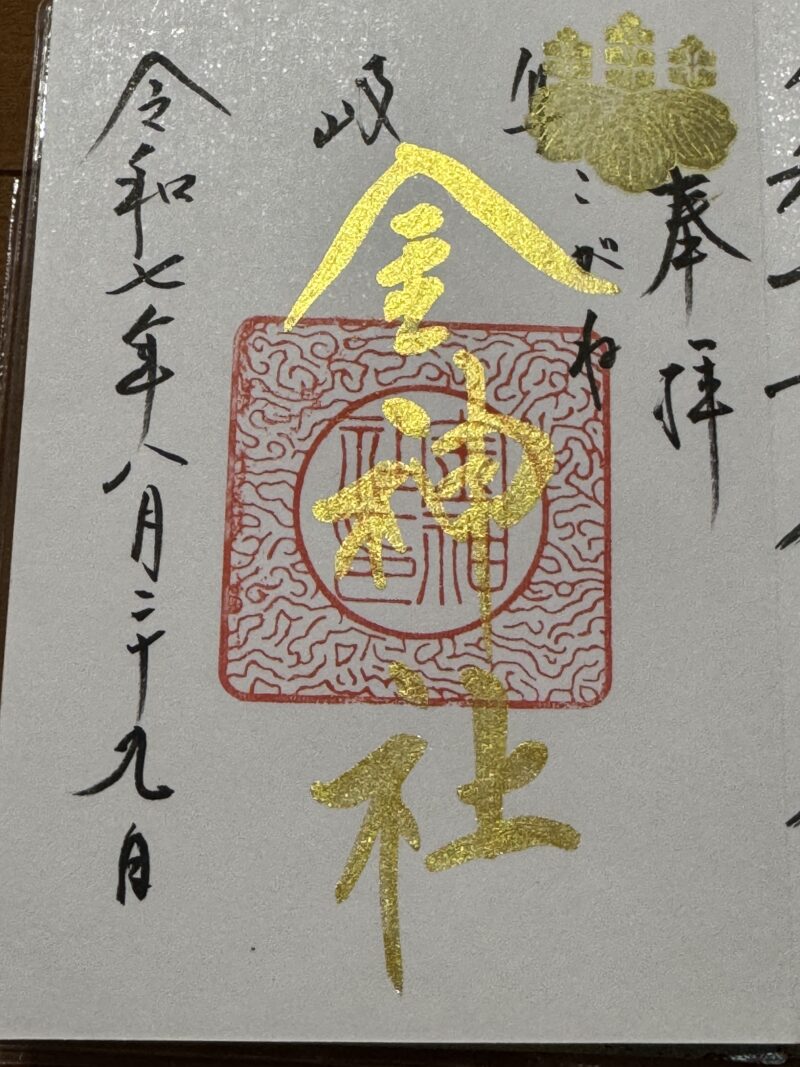 奉拝
岐阜
こがね
金神社
令和七年八月二十九日